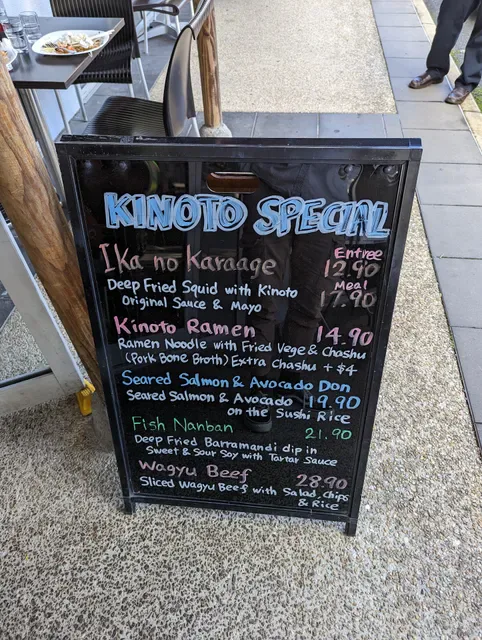 KINOTO SPECIAL
Entree
Ika no Karaage 12.90
Meal
Deep Fried Squid with Kinoto 17.90
Original Sauce & Mayo
Kinoto Ramen 14.90
Ramen Noodle with Fried Vege & Chashu
(Pork Bone Broth) Extra Chashu + $4
Seared Salmon & Avocado Don
Seared Salmon & Avocado 19.90
on the Sushi Rice
Fish Nanban 21.90
Deep Fried Barramandi dip in
Sweet & Sour Soy with Tartar Sauce
Wagyu Beef 28.90
Sliced Wagyu Beef with Salad, Chips
& Rice